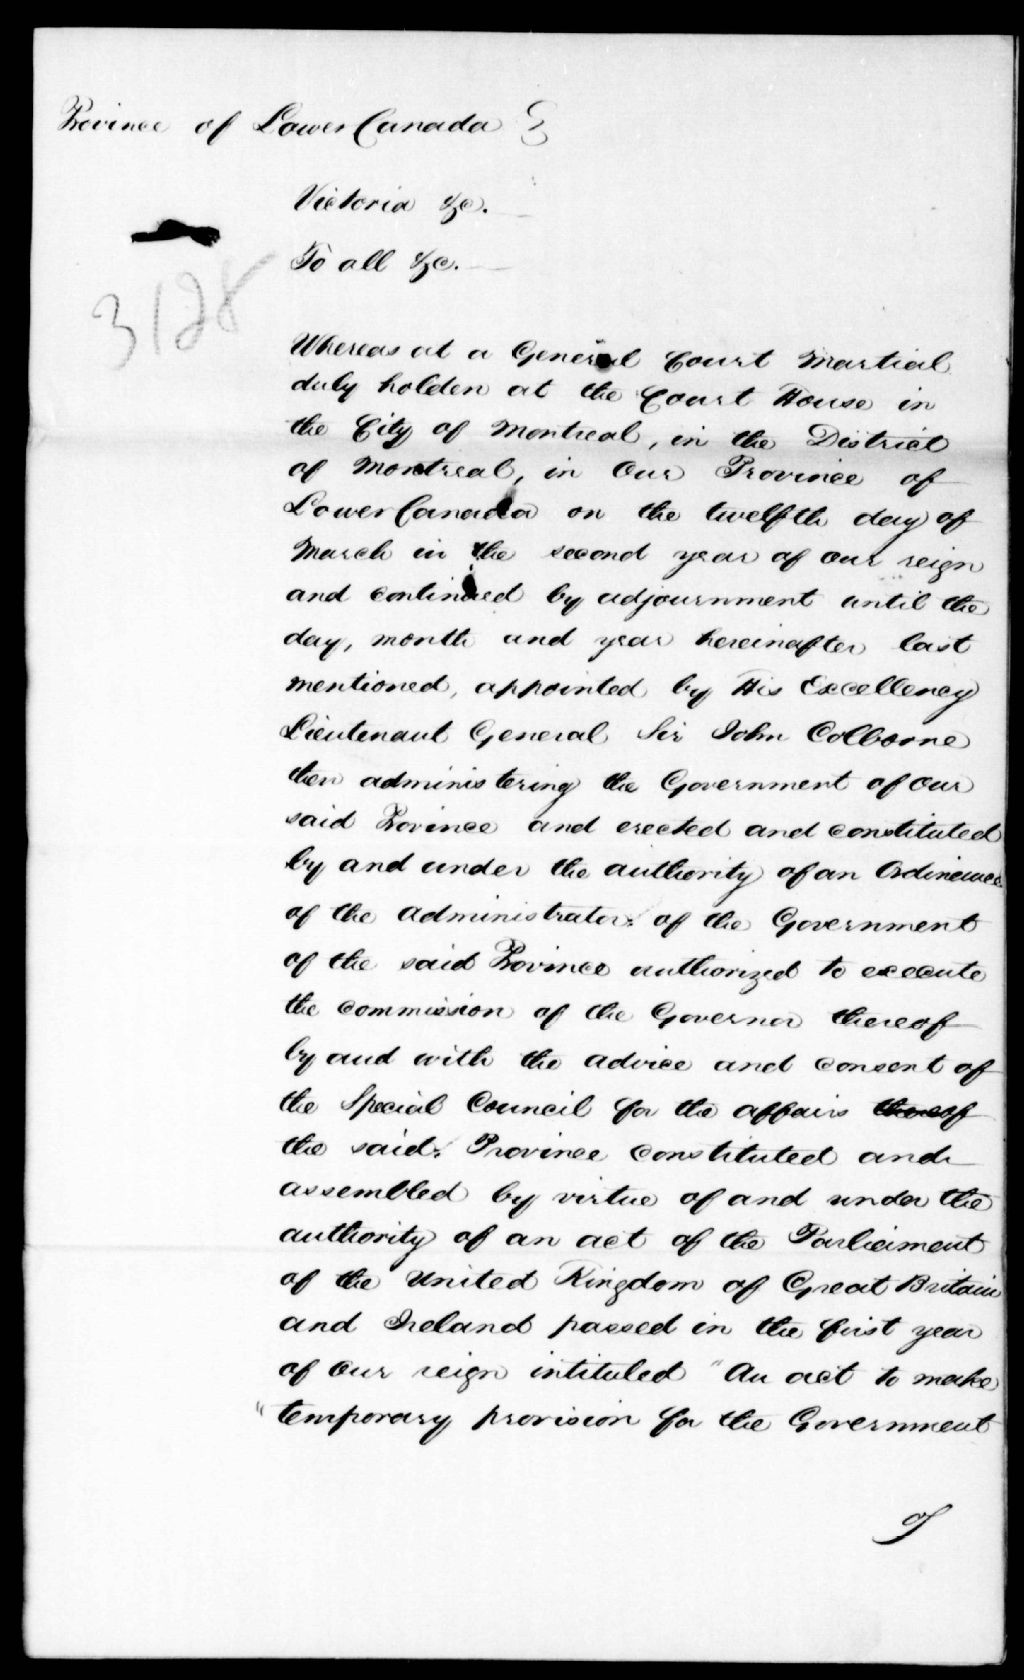 Province of Lower Canada
Victoria &c.
To all &c.
3128
Whereas at a General Court Martial
duly holden at the Court House in
the City of Montreal, in the District
of Montreal, in Our Province of
Lower Canada on the twelfth day of
March in the second year of our reign
and continued by adjournment until the
day, month and year hereinafter last
mentioned, appointed by His Excellency
Lieutenant General Sir John Colborne
then administering the Government of Our
said Province and erected and constituted
by and under the authority of an Ordinance
of the administrator of the Government
of the said Province authorized to execute
the commission of the Governor thereof
by and with the advice and consent of
the Special Council for the affairs thereof
the said Province constituted and
assembled by virtue of and under the
authority of an act of the Parliament
of the United Kingdom of Great Britain
and Ireland passed in the first year
of Our reign intituled "An act to make
"temporary provision for the Government
of